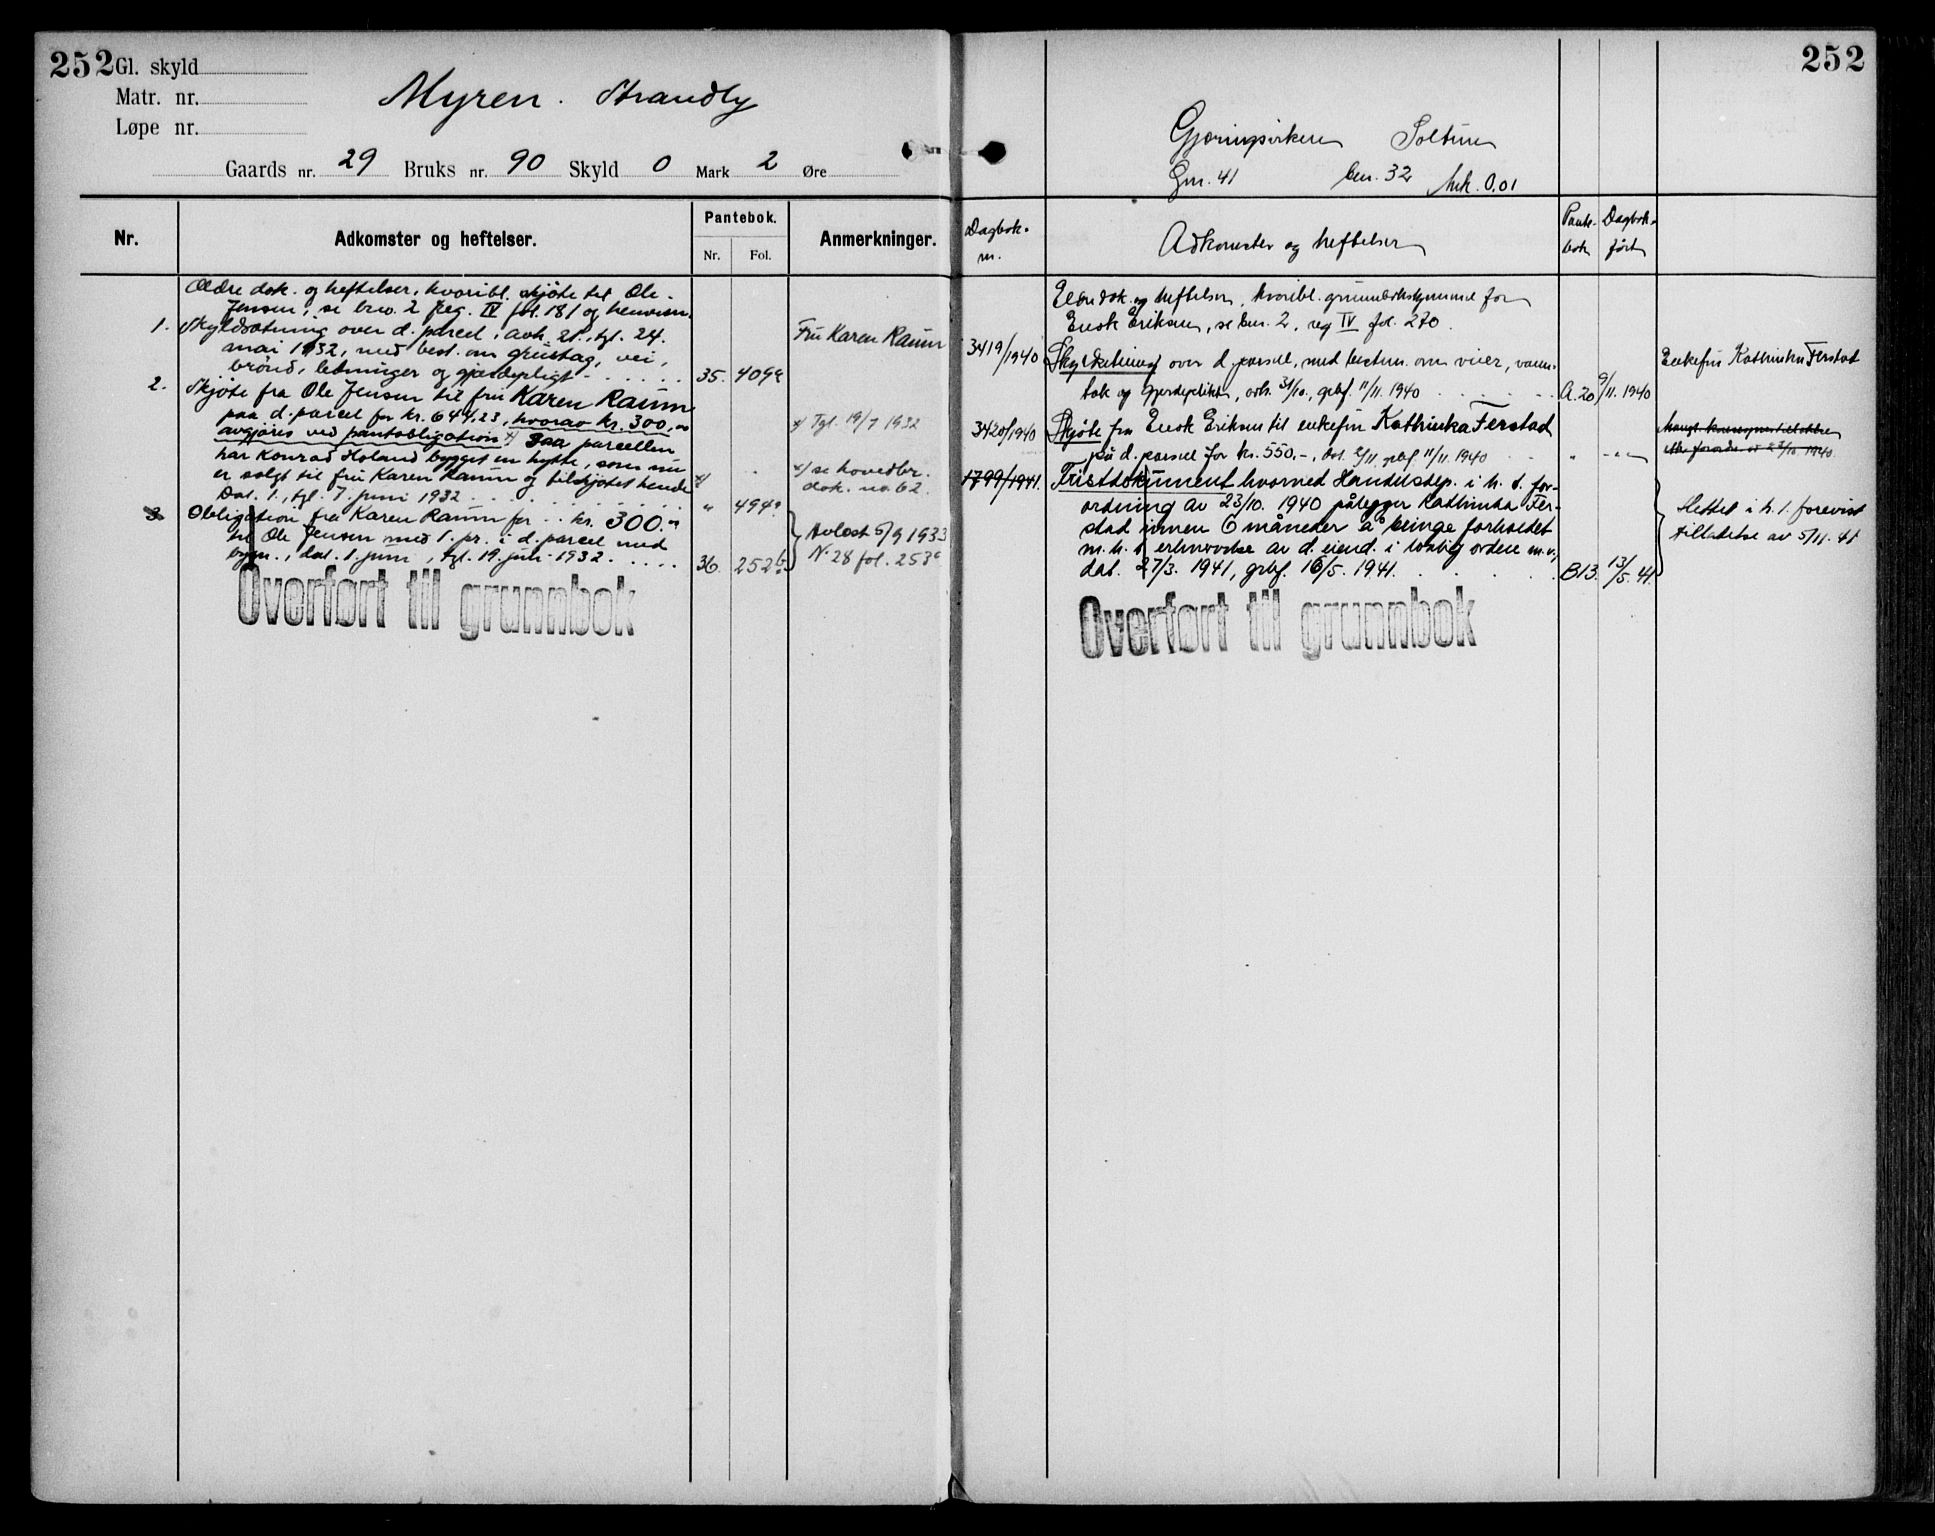 252
Gl. skyld
Matr. nr.
Løpe nr.
Myren. Strandly
Gaards nr. 29 Bruks nr. 90 Skyld 0 Mark 2 Øre
Nr.
Adkomster og heftelser.
Pantebok.
Nr. Fol.
Anmerkninger.
Ældre dok. og heftelser, hvoribl. skjøte til Ole
Jensen, se brn. 2 reg. IV fol. 181 og henvisn.
1. Skyldsætning over d. parcel, avh. 21., tgl. 24.
mai 1932, med best. om grustag, vei,
brønd, ledninger og gjærdepligt 35. 409a
Fru Karen Raum
2. Skjøte fra Ole Jensen til fru Karen Raum
paa d. parcel for kr. 644,23, hvorav kr. 300,00
avgjøres ved pantobligation x) Paa parcellen
har Konrad Holand bygget en hytte, som nu
er solgt til fru Karen Raum og tilskjøtet hende x)
Dat. 1., tgl. 7. juni 1932 " 494a
x) Tgl. 19/7 1932
x) se hovedbr.
dok. no. 62.
3. Obligation fra Karen Raum for kr. 300.00
til Ole Jensen med 1. pr. i d. parcel med
bygn., dat. 1. juni, tgl. 19. juli 1932. 36. 252b
Avløst 5/9 1933
N. 28 fol. 253c
Overført til grunnbok
252
Soltun
Gnr. 41 bnr. 32 Mk. 0.01
Dagbok-
nr.
Adkomster og heftelser
Pante-
bok
Dagbok-
ført
Eldre dok. og heftelser, hvoribl. for
Enok Eriksen, se bnr. 2, reg IV fol. 270.
3419/1940 Skyldskatning over d. parsel, med bestem. om veier, vann-
tak og gjerdeplikt, avh. 31/10., grbf. 11/11. 1940 A. 20 9/11. 1940
Enkefru Kathinka Ferstad
3420/1940 Skjøte fra Enok Eriksen til enkefru Kathinka Ferstad
på d. parsel for kr. 550,-, dat. 2/11 grbf. 11/11. 1940 " -"-
1799/1941. Fristdokument hvorved Handelsdep. i h. t. for-
ordning av 23/10. 1940 pålegger Kathinka Fer-
stad innen 6 måneder å bringe forholdet
m. h. t. erhvervelse av d. eiend. i lovlig orden m.v.,
dat. 27/3. 1941, grbf. 16/5. 1941. B13. 13/5. 41.
Slettet i h. t. forevist
tilladelse av 5/11. 41
Overført til grunnbok